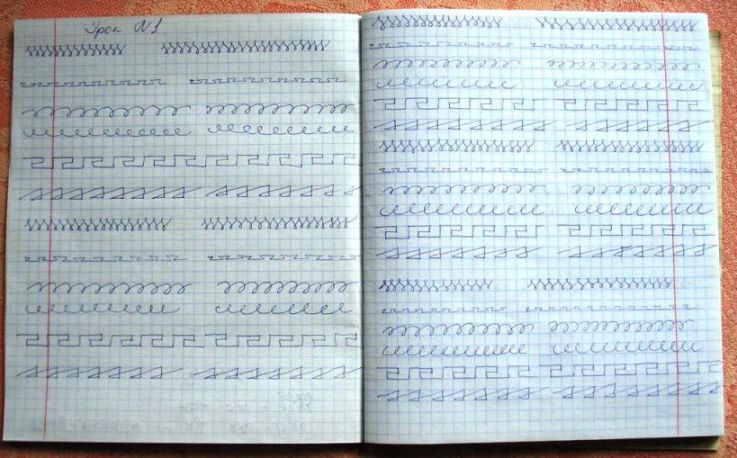 Урок N1